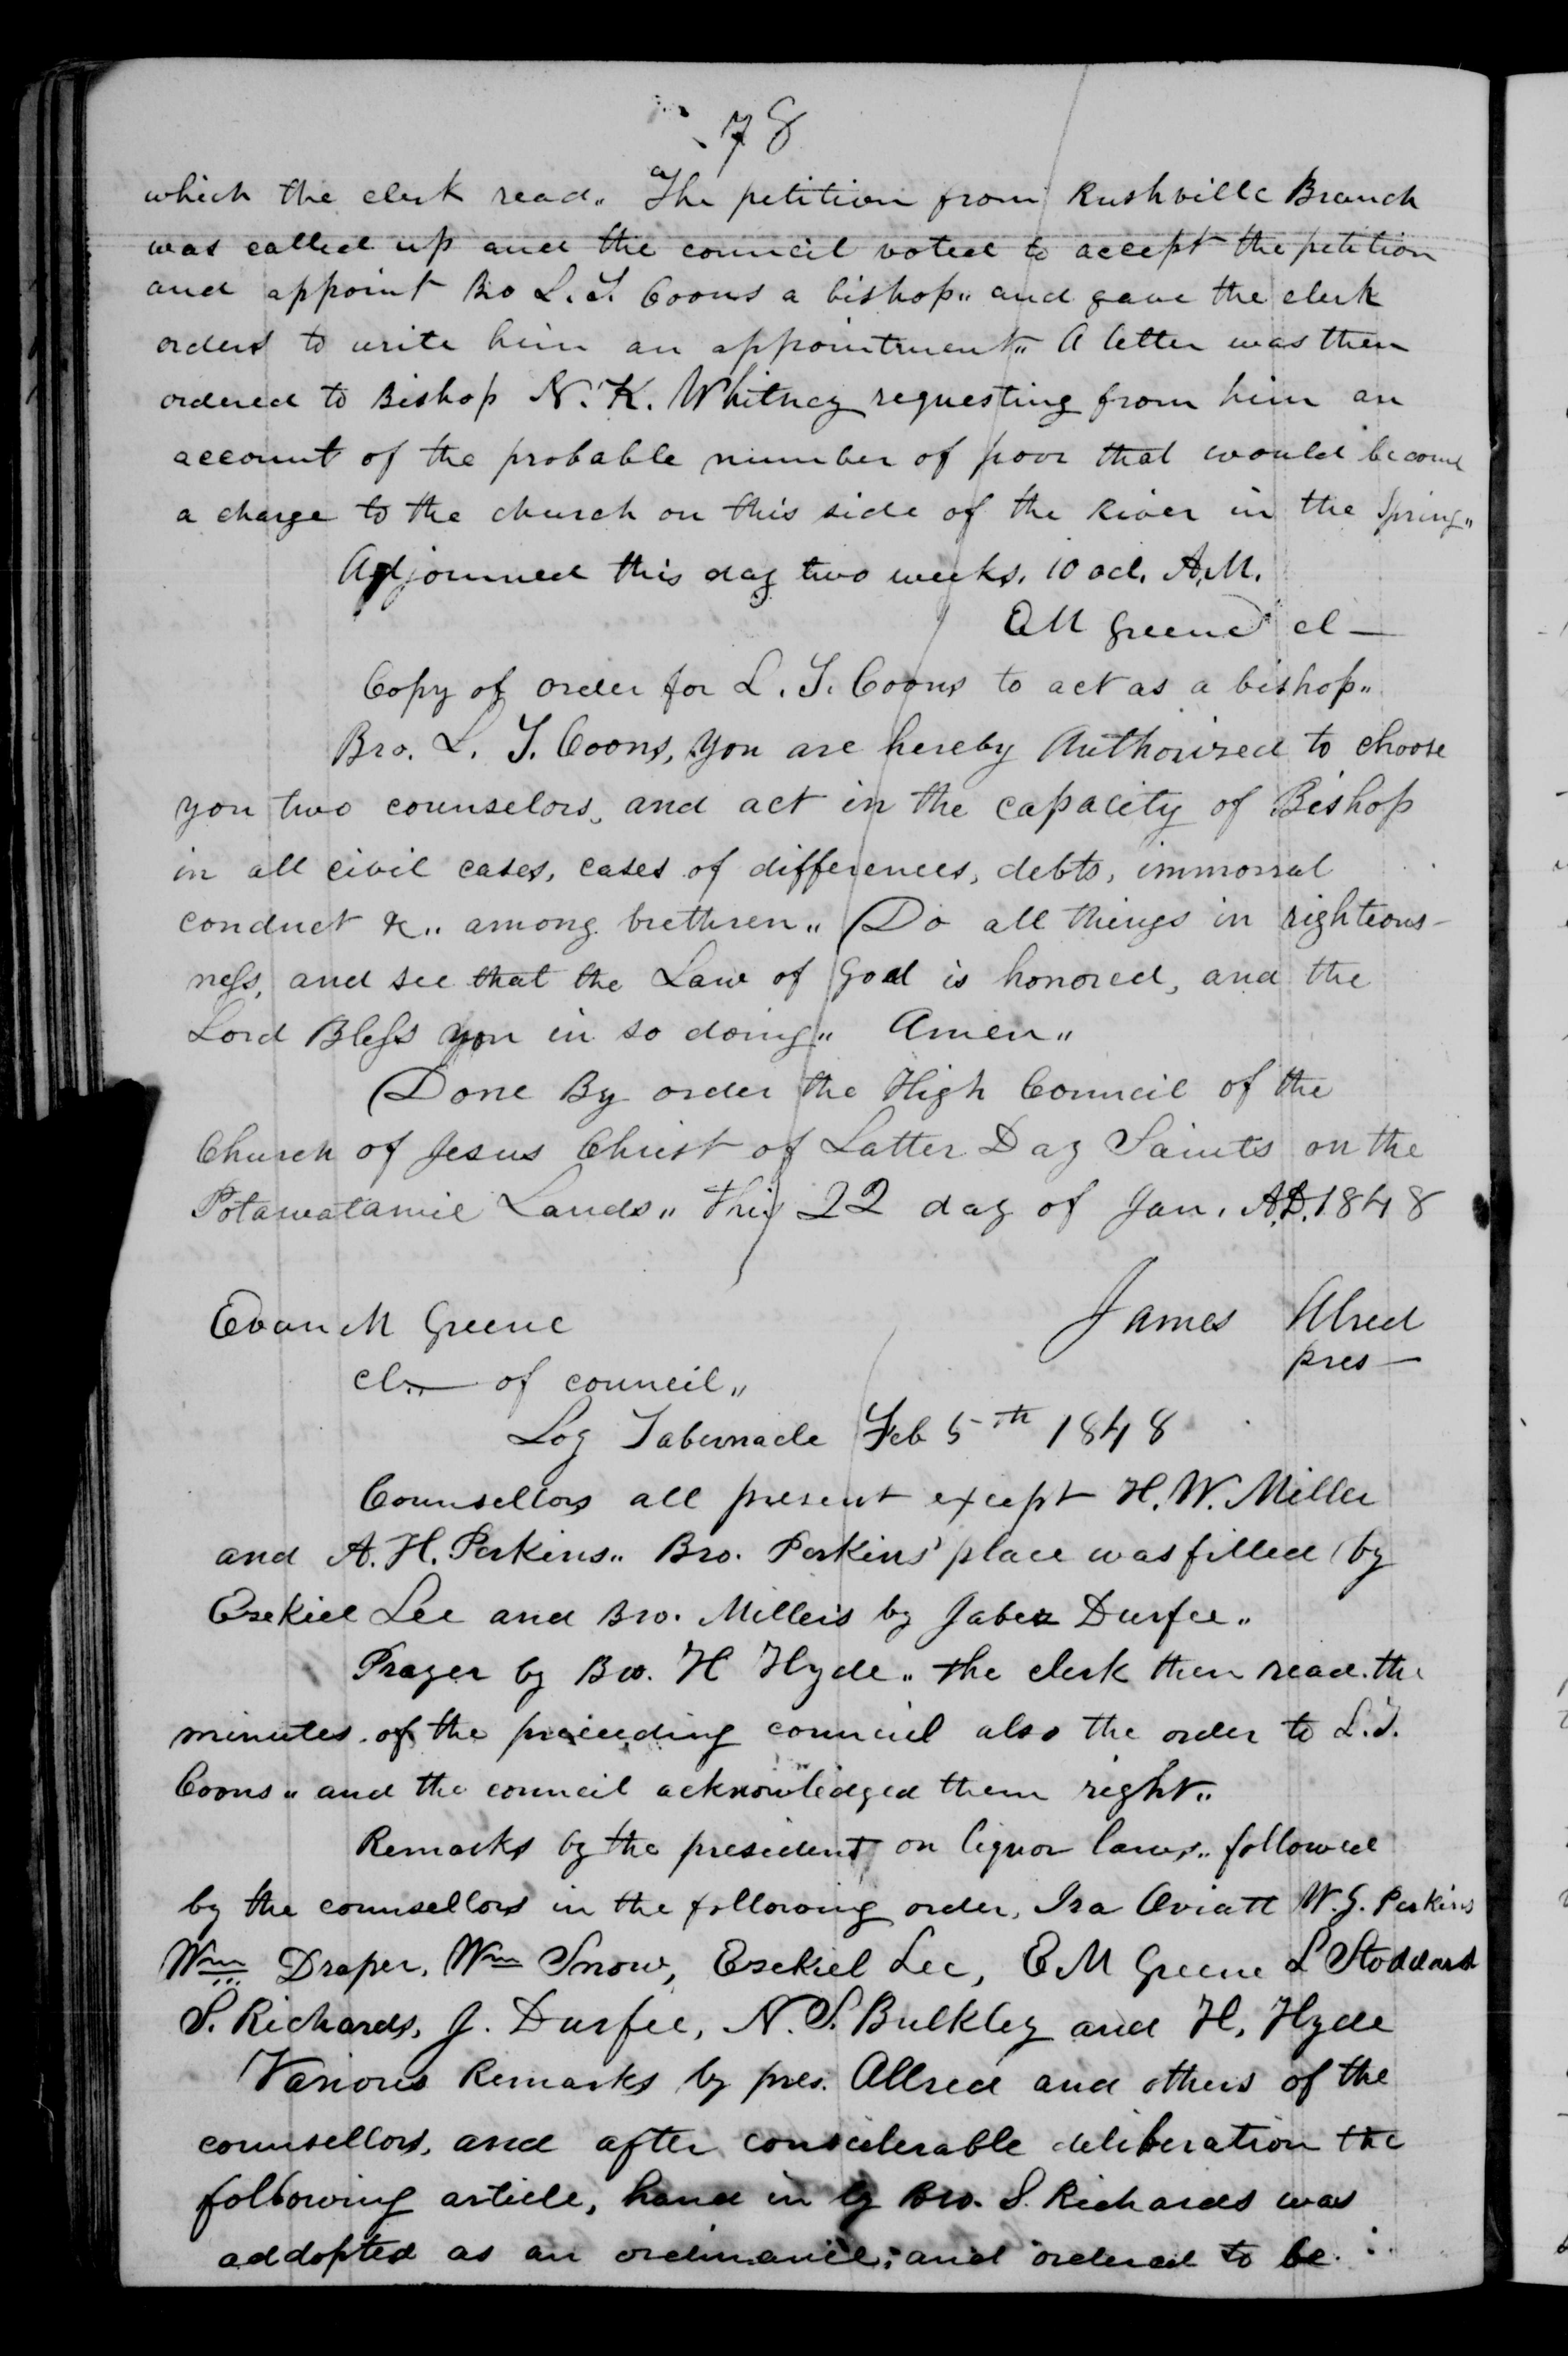 78
which the clerk read,, The petition from Rushville Branch
was called up and the council voted to accept the petition
and appoint Bro L. T. Coons a bishop,, and gave the clerk
orders to write him an appointment,, A letter was then
ordered to Bishop N. K. Whitney requesting from him an
account of the probable number of poor that would become
a charge to the church on this side of the River in the Spring,,
Adjourned this day two weeks, 10 ocl. A.M.
E M Greene cl—
Copy of order for L. T. Coons to act as a bishop,,
Bro. L. T. Coons, You are hereby Authorized to choose
you two counselors, and act in the capacity of Bishop
in all civil cases, cases of differences, debts, immorral
conduct &c,, among brethren,, Do all things in righteous-
ness, and see that the Law of God is honored, and the
Lord Bless you in so doing,, Amen,,
Done By order the High Council of the
Church of Jesus Christ of Latter Day Saints on the
Potawatamie Lands,, this 22 day of Jan. A.D. 1848
Evan M Greene
James Alred
pres—
cl— of council,,
Log Tabernacle Feb 5th 1848
Counsellors all present except H. W. Miller
and A. H. Perkins,, Bro. Perkins' place was filled by
Ezekiel Lee and Bro. Millers by Jabez Durfee,,
Prayer by Bro. H Hyde,, the clerk then read the
minutes of the preceeding council also the order to L. T.
Coons,, and the council acknowledged them right,,
Remarks by the president on liquor laws,, followed
by the counsellors in the following order, Ira Oviatt W. G. Perkins
Wm Draper, Wm Snow, Ezekiel Lee, E M Greene L Stoddard
S. Richards, J. Durfee, N. S. Bulkley and H. Hyde
Various Remarks by pres. Allred and others of the
counsellors, and after considerable deliberation the
following article, hand in by Bro. S. Richards was
addopted as an ordinance; and ordered to be